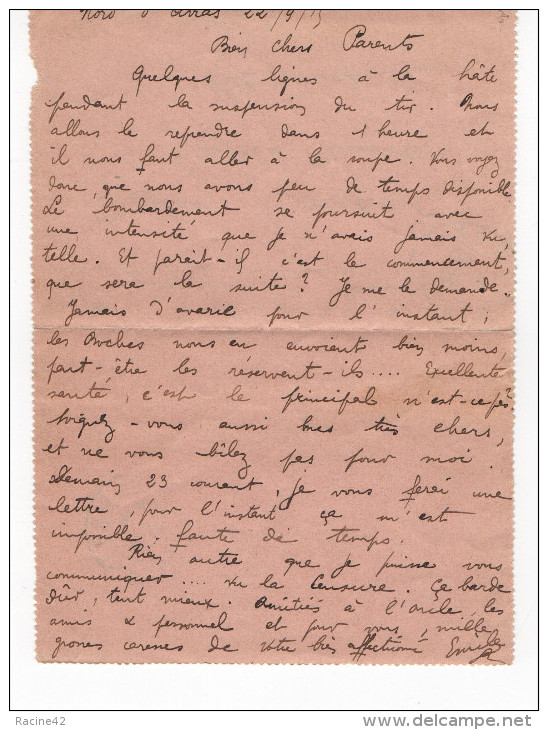 Nord d'Arras 22/9/15
Bien chers Parents
Quelques lignes à la hâte
pendant la suspension du tir. Nous
allons le reprendre dans 1 heure et
il nous faut aller à la soupe. Vous voyez
donc, que nous avons peu de temps disponible
Le bombardement se poursuit avec
une intensité que je n'avais jamais vu,
telle. Et parait-il c'est le commencement,
que sera la suite? Je me le demande..
Jamais d'avarie pour l'instant;
les Boches nous en envoient bien moins,
peut-être les réservent-ils.... Excellente
santé, c'est le principal n'est-ce pas?
Soignez-vous aussi mes très chers,
et ne vous bîlez pas pour moi.
Demain 23 courant, je vous ferai une
lettre, pour l'instant ça m'est
impossible. faute de temps.
Rien autre que je puisse vous
communiquer.... vu la Censure. Ça barde
dur, tant mieux. Amitiés à l'oncle, les
amis & personnel et pour vous, mille
grosses caresses de votre bien affectionné Emile
Racine42
www.delcampe.net